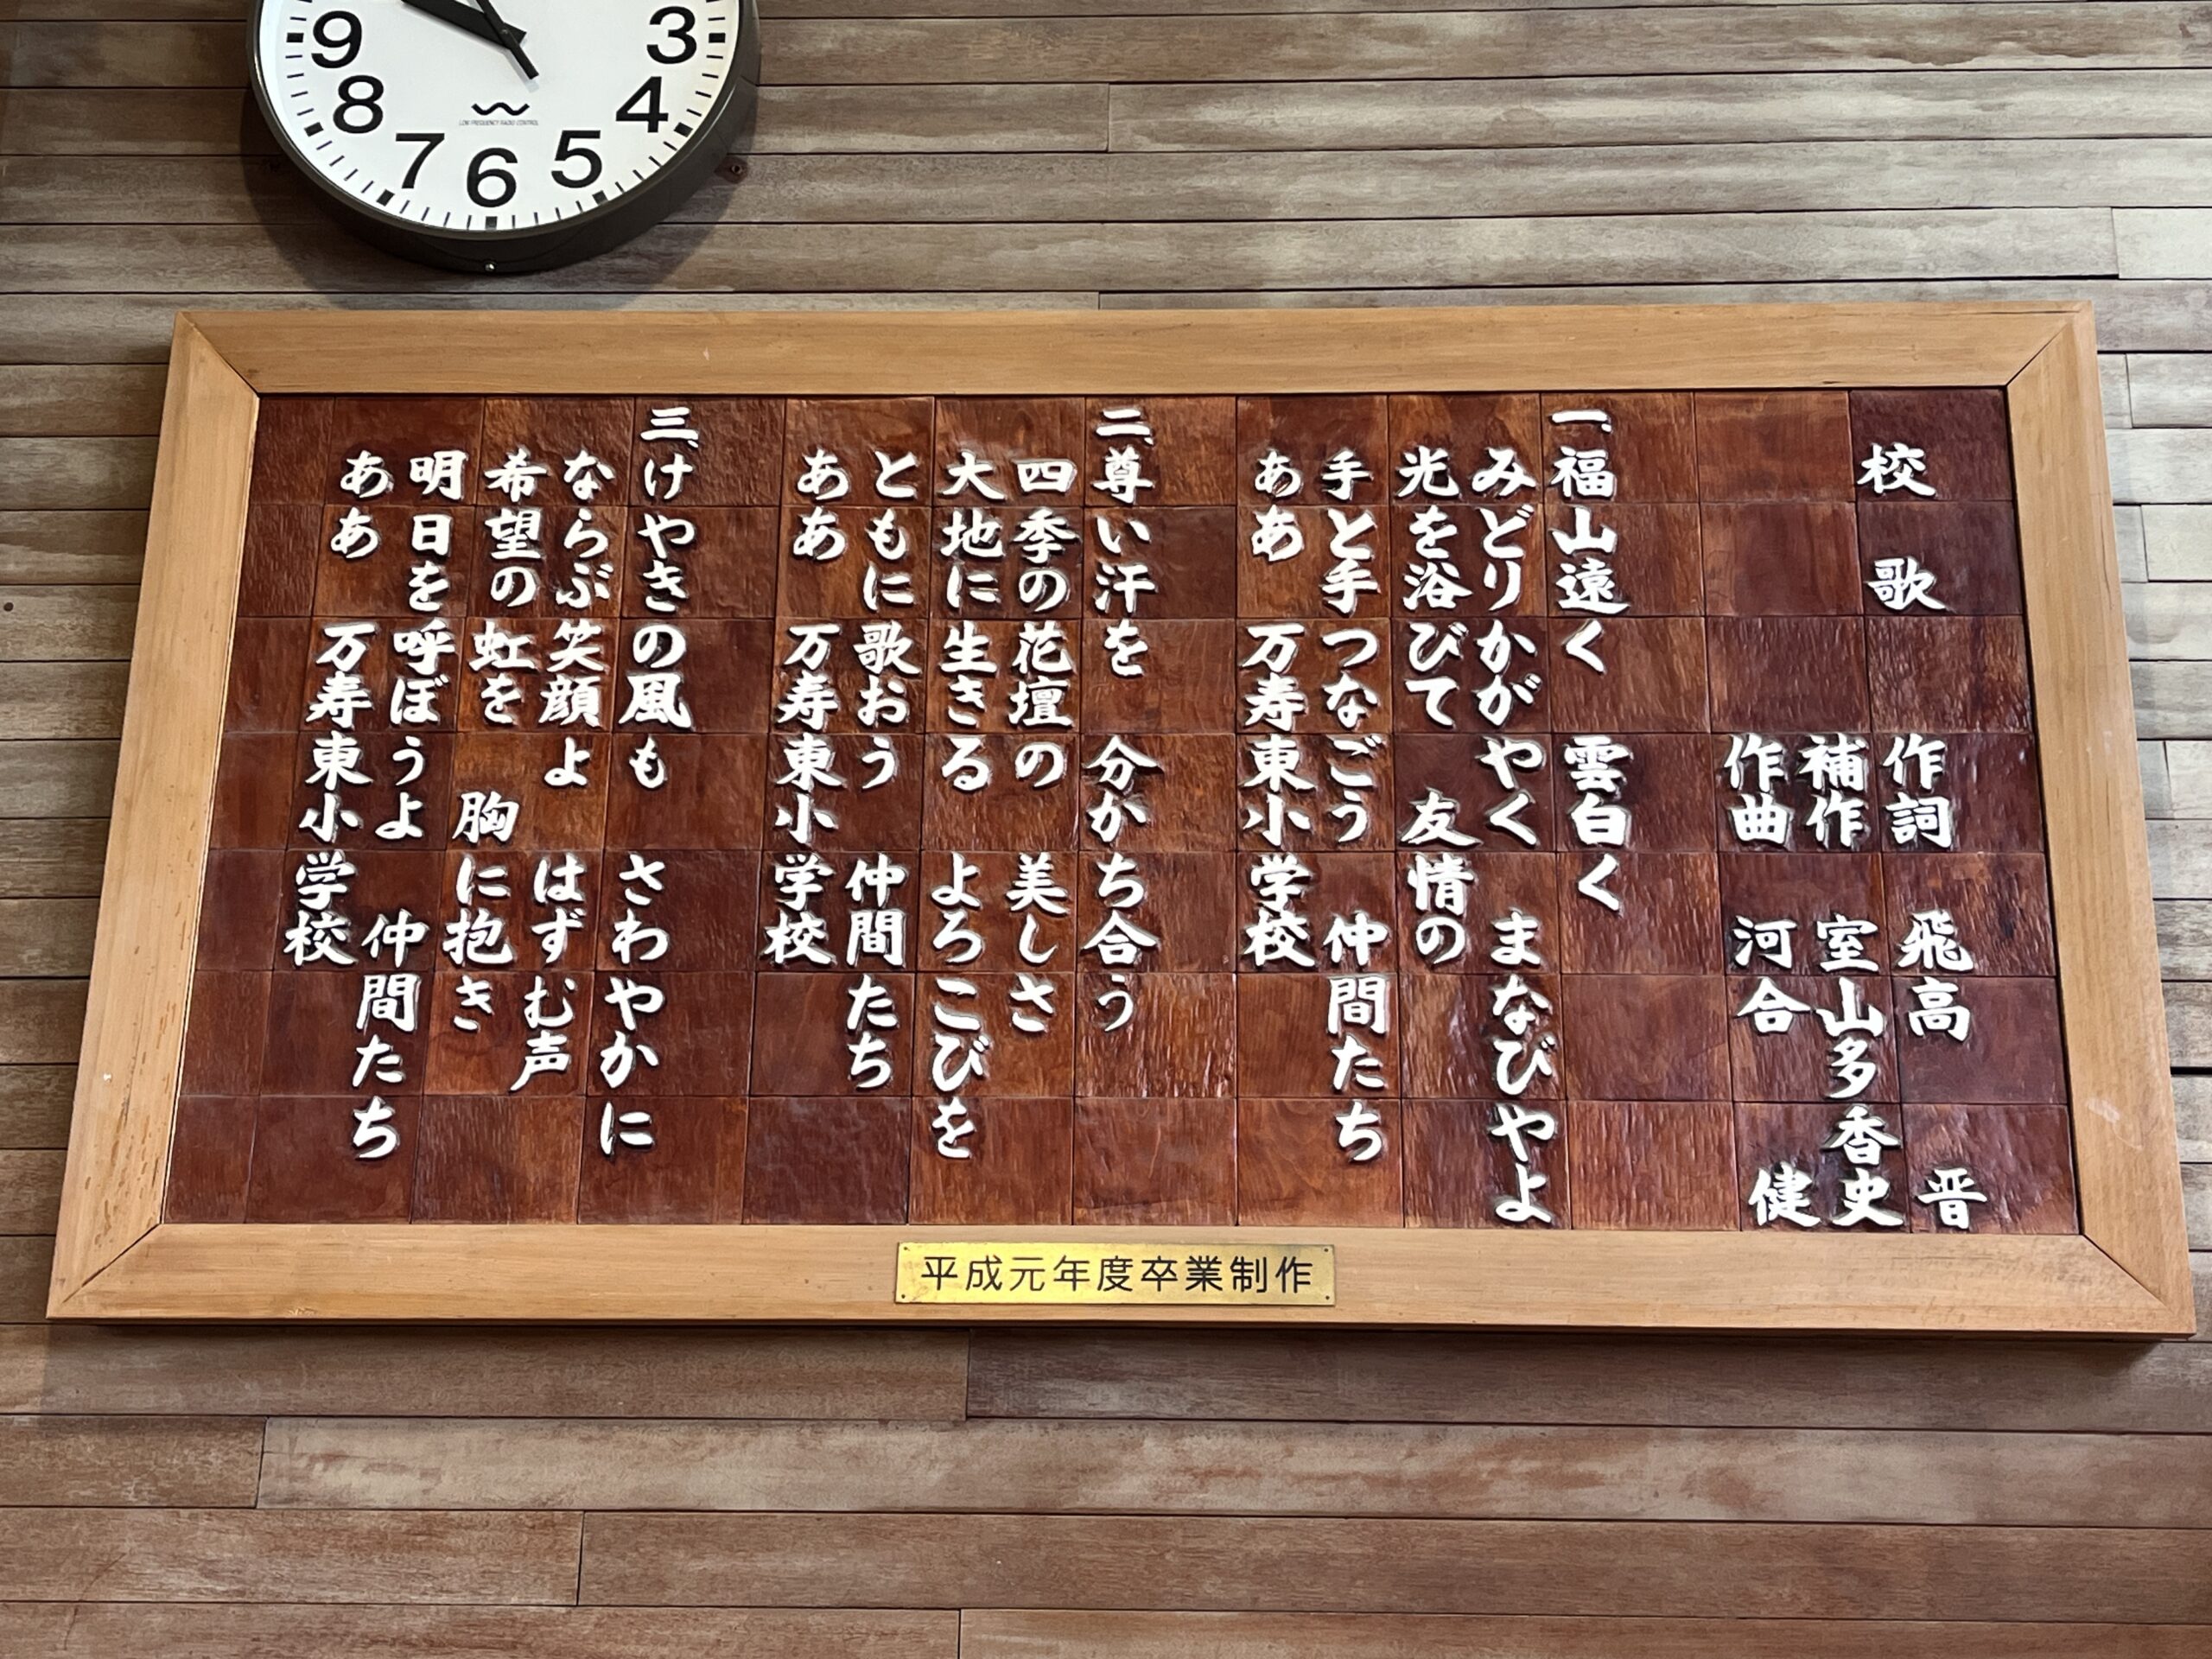 9
8
7
6
5
4
3
LOW FREQUENCY RADIO CONTROL
校歌
作詞 飛高 晋
補作 室山多香史
作曲 河合 健
一、福山遠く 雲白く
みどりかがやく まなびやよ
光を浴びて 友情の
手と手つなごう 仲間たち
ああ 万寿東小学校
二、尊い汗を 分かち合う
四季の花壇の 美しさ
大地に生きる よろこびを
ともに歌おう 仲間たち
ああ 万寿東小学校
三、けやきの風も さわやかに
ならぶ笑顔よ はずむ声
希望の虹を 胸に抱き
明日を呼ぼうよ 仲間たち
ああ 万寿東小学校
平成元年度卒業制作